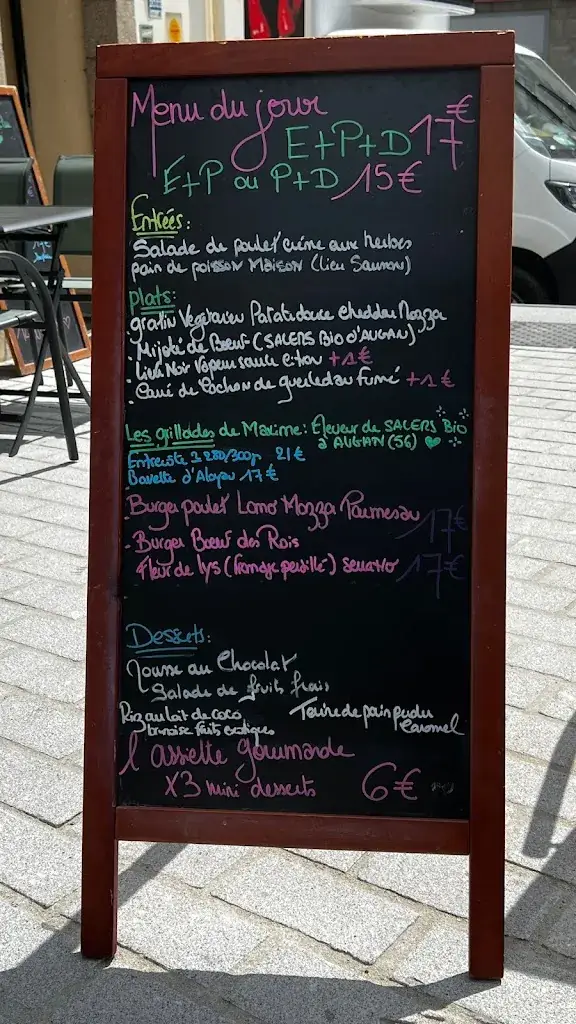 Menu du jour
E+P+D 17€
E+P ou P+D 15€
Entrées:
Salade de poulet crème aux herbes
pain de poisson Maison (Lieu Saumon)
plats:
gratin Végétarien Patate douce cheddar Mozza
. Mijoté de Bœuf (SALERS BIO d'AUGAN)
. Lieu Noir Vapeur sauce citron +1€
. Carré de Cochon de gueledau fumé +1€
Les grillades de Maxime: Éleveur de SALERS Bio
à AUGAN (56)
Entrecôte 280/300gr 21€
Bavette d'Aloyau 17€
. Burger poulet Lomo Mozza Parmesan 17€
. Burger Bœuf des Rois
Fleur de lys (fromage persillé) serrano 17€
Desserts:
Mousse au Chocolat
Salade de fruits frais
Riz au lait de coco
brunoise fruits exotiques
Terrine de pain perdu
Caramel
l'assiette gourmande
X3 mini desserts 6€